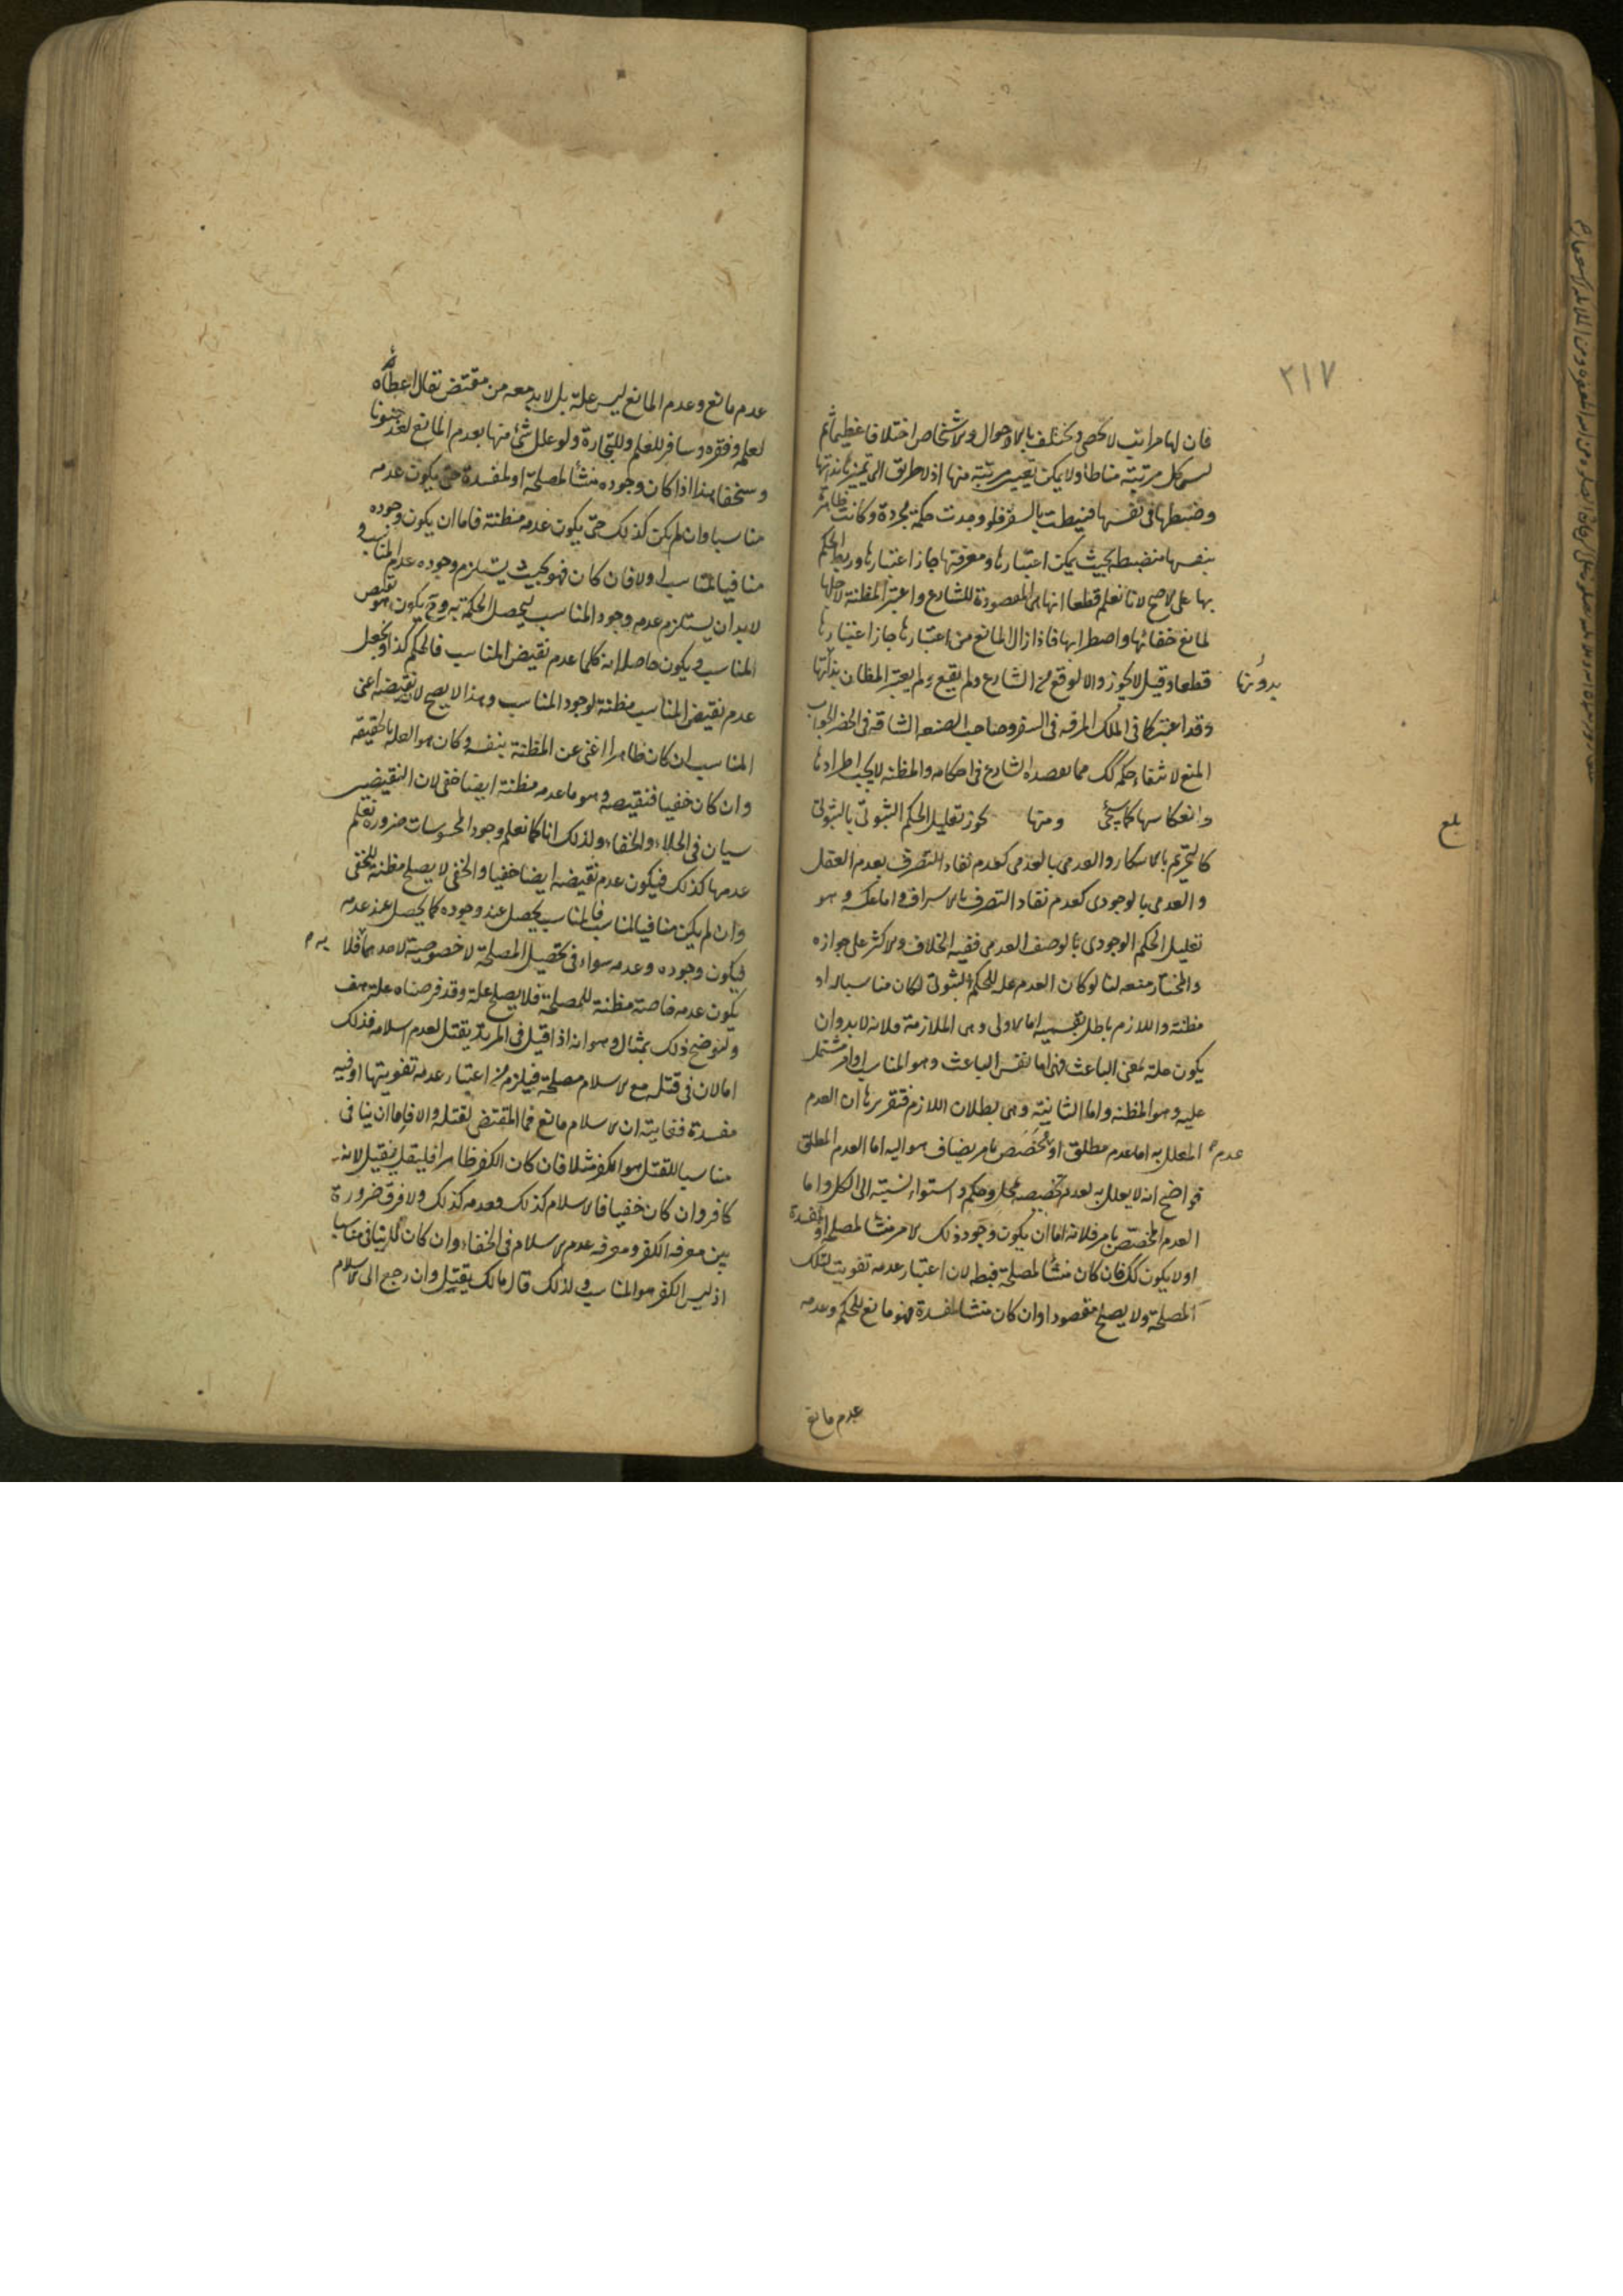 ٢١٧
فان لها مراتب لا تحصى وتختلف بالاحوال والاشخاص اختلافا عظيما ثم
ليس كل مرتبة مناطا ولا يمكن تعيين مرتبة منها اذ لا طريق الى تميزها بذاتها
وضبطها في نفسها فنيطت بالسفر فلو وجدت حكمة مجردة وكانت ظاهرة
بنفسها منضبطة بحيث يمكن اعتبارها ومعرفتها جاز اعتبارها وربط الحكم
بها على الاصح لانا نعلم قطعا انها هي المقصودة للشارع واعتبر المظنة لاجلها
لمانع خفائها واضطرابها فاذا زال المانع من اعتبارها جاز اعتبارها
قطعا وقيل لا يجوز والا لوقع من الشارع ولم يقع ولم يعتبر المظان بذاتها
بدونها
وقد اعتبر كما في الملك المرفه في السفر وصاحب الصنعة الشاقة في الحضر الجواب
المنع لانتفاء حكم كك مما يقصده الشارع في احكامه والمظنة لا يجب اطرادها
وانعكاسها كما سيجئ ومنها يجوز تعليل الحكم الثبوتي بالثبوتي
بلغ
كالتحريم بالاسكار والعدمي بالعدمي كعدم نفاد التصرف بعدم العقل
والعدمي بالوجودي كعدم نفاد التصرف بالاسراف واما عكسه وهو
تعليل الحكم الوجودي بالوصف العدمي ففيه الخلاف والاكثر على جوازه
والمختار منعه لنا لو كان العدم علة للحكم الثبوتي لكان مناسبا له او
مظنة واللازم باطل بقسميه اما الاولى وهي الملازمة فلانه لابد وان
يكون علة بمعنى الباعث فهي اما نفس الباعث وهو المناسب او امر مشتمل
عليه وهو المظنة واما الثانية وهي بطلان اللازم فتقريرها ان العدم
المعلل به اما عدم مطلق او مخصص بامر يضاف هو اليه اما العدم المطلق
عدم
فواضح انه لا يعلل به لعدم تخصيصه بمحل وحكم واستواء نسبته الى الكل واما
العدم المخصص بامر فلانه اما ان يكون وجود ذلك الامر منشأ لمصلحة او لمفسدة
او لا يكون كك فان كان منشأ لمصلحة فبطل لان اعتبار عدمه تفويت لتلك
المصلحة ولا يصلح مقصودا وان كان منشأ لمفسدة فهو مانع للحكم وعدمه
عدم مانع
عدم مانع وعدم المانع ليس علة بل لابد معه من مقتض تقال اعطاه
لعلمه وفقره وسافر للعلم وللتجارة ولو علل شئ منها بعدم المانع لعد جنونا
وسخفا هذا اذا كان وجوده منشأ لمصلحة او لمفسدة حتى يكون عدمه
مناسبا وان لم يكن كذلك حتى يكون عدمه مظنته فاما ان يكون وجوده
منافيا لمناسب او لا فان كان فهو بحيث يستلزم وجوده عدم المناسب و
لابد ان يستلزم عدمه وجود المناسب ليحصل الحكمة به وح يكون هو نقيض
المناسب ويكون حاصله انه كلما عدم نقيض المناسب فالحكم كذا ويجعل
عدم نقيض المناسب مظنة لوجود المناسب وهذا لا يصح لان نقيضه اعني
المناسب ان كان ظاهرا اغنى عن المظنة بنفسه وكان هو العلة بالحقيقة
وان كان خفيا فنقيضه وهو ما عدمه مظنة ايضا خفي لان النقيضين
سيان في الجلاء والخفاء ولذلك انا كما نعلم وجود المحسوسات ضرورة نعلم
عدمها كذلك فيكون عدم نقيضه ايضا خفيا والخفي لا يصلح مظنة للخفي
وان لم يكن منافيا لمناسب فالمناسب يحصل عند وجوده كما يحصل عند عدمه
فيكون وجوده وعدمه سواء في تحصيل المصلحة لا خصوصية لاحدهما فلا
يكون عدمه خاصة مظنة للمصلحة فلا يصلح علة وقد فرضناه علة هف
ولنوضح ذلك بمثال وهو انه اذا قيل في المرتد يقتل لعدم اسلامه فذلك
اما لان في قتله مع الاسلام مصلحة فيلزم من اعتبار عدمه تفويتها او فيه
مفسدة فغايته ان الاسلام مانع فما المقتضي لقتله والا فاما ان ينافي
مناسبا للقتل هو الكفر مثلا فان كان الكفر ظاهرا فليقل يقتل لانه
كافر وان كان خفيا فالاسلام كذلك فعدمه كذلك ولا فرق ضرورة
بين معرفة الكفر ومعرفة عدم الاسلام في الخفاء وان كان لا ينافي مناسبا
اذ ليس الكفر هو المناسب ولذلك قال مالك يقتل وان رجع الى الاسلام